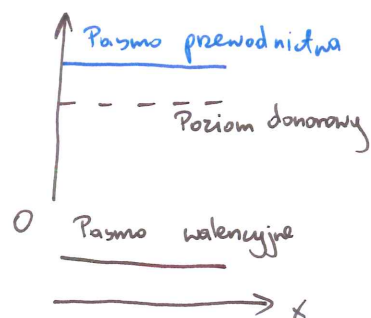 Pasmo przewodnictwa
Poziom donorowy
O
Pasmo walencyjne
x